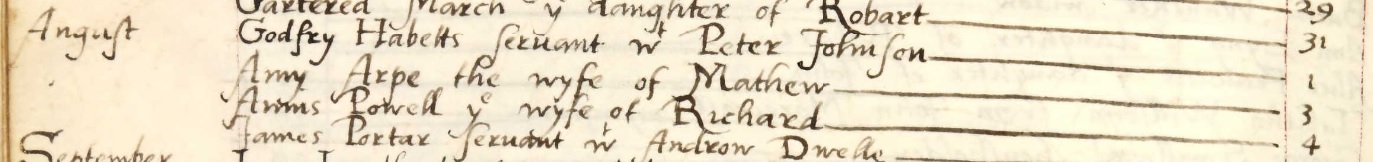 Gartered March yͤ daughter of Robart 29
August Godfry Habetts servant wͭ Peter Johnson 31
Amy Arpe the wyfe of Mathew 1
Annis Powell yͤ wyfe of Richard 3
James Portar servant wͭ Androw Dwelle 4
September